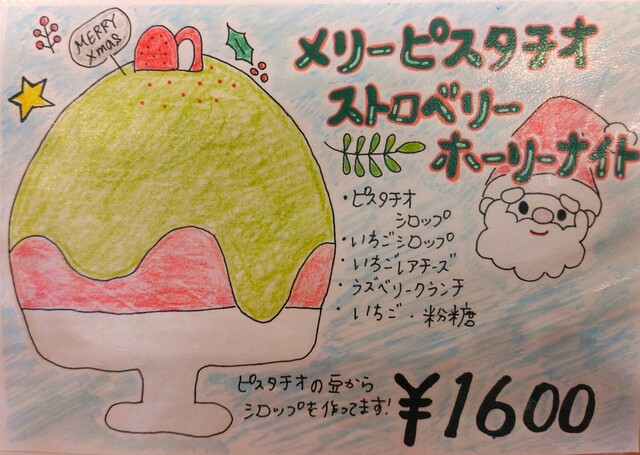 MERRY
xmas
メリーピスタチオ
ストロベリー
ホーリーナイト
・ピスタチオ
シロップ
・いちごシロップ
・いちごレアチーズ
・ラズベリークランチ
・いちご・粉糖
ピスタチオの豆から
シロップを作ってます!
¥1600